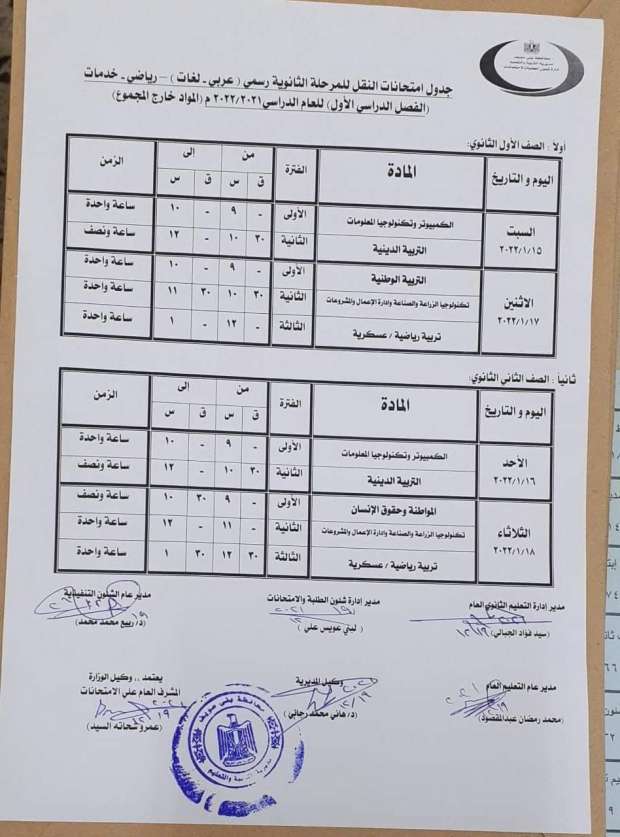 محافظة بني سويف
مديرية التربية والتعليم
جدول امتحانات النقل للمرحلة الثانوية رسمي ( عربي ـ لغات ) – رياضي ـ خدمات
(الفصل الدراسي الأول) للعام الدراسي ٢٠٢٢/٢٠٢١ م (المواد خارج المجموع)
أولا : الصف الأول الثانوي:
اليوم و التاريخ المادة الفترة من إلى الزمن
ق س ق س
السبت ٢٠٢٢/١/١٥
الكمبيوتر وتكنولوجيا المعلومات الأولى - ٩ - ١٠ ساعة واحدة
التربية الدينية الثانية ٣٠ ١٠ - ١٢ ساعة ونصف
الاثنين ٢٠٢٢/١/١٧
التربية الوطنية الأولى - ٩ - ١٠ ساعة واحدة
تكنولوجيا الزراعة والصناعة وادارة الإعمال والمشروعات الثانية ٣٠ ١٠ ٣٠ ١١ ساعة واحدة
تربية رياضية / عسكرية الثالثة - ١٢ - ١ ساعة واحدة
ثانيا : الصف الثاني الثانوي:
اليوم و التاريخ المادة الفترة من إلى الزمن
ق س ق س
الأحد ٢٠٢٢/١/١٦
الكمبيوتر وتكنولوجيا المعلومات الأولى - ٩ - ١٠ ساعة واحدة
التربية الدينية الثانية ٣٠ ١٠ - ١٢ ساعة ونصف
الثلاثاء ٢٠٢٢/١/١٨
المواطنة وحقوق الإنسان الأولى - ٩ ٣٠ ١٠ ساعة ونصف
تكنولوجيا الزراعة والصناعة وادارة الإعمال والمشروعات الثانية - ١١ - ١٢ ساعة واحدة
تربية رياضية / عسكرية الثالثة ٣٠ ١٢ ٣٠ ١ ساعة واحدة
مدير إدارة التعليم الثانوي العام مدير إدارة شئون الطلبة والامتحانات مدير عام الشئون التنفيذية
(سيد فؤاد الجبالي) ( لبني عويس علي ) (د/ربيع محمد محمد)
مدير عام التعليم العام وكيل المديرية يعتمد ،، وكيل الوزارة
المشرف العام علي الامتحانات
(محمد رمضان عبدالمقصود) (د/هاني محمد رحائي) (عمرو شحاته السيد)
محافظة بني سويف
مديرية التربية والتعليم